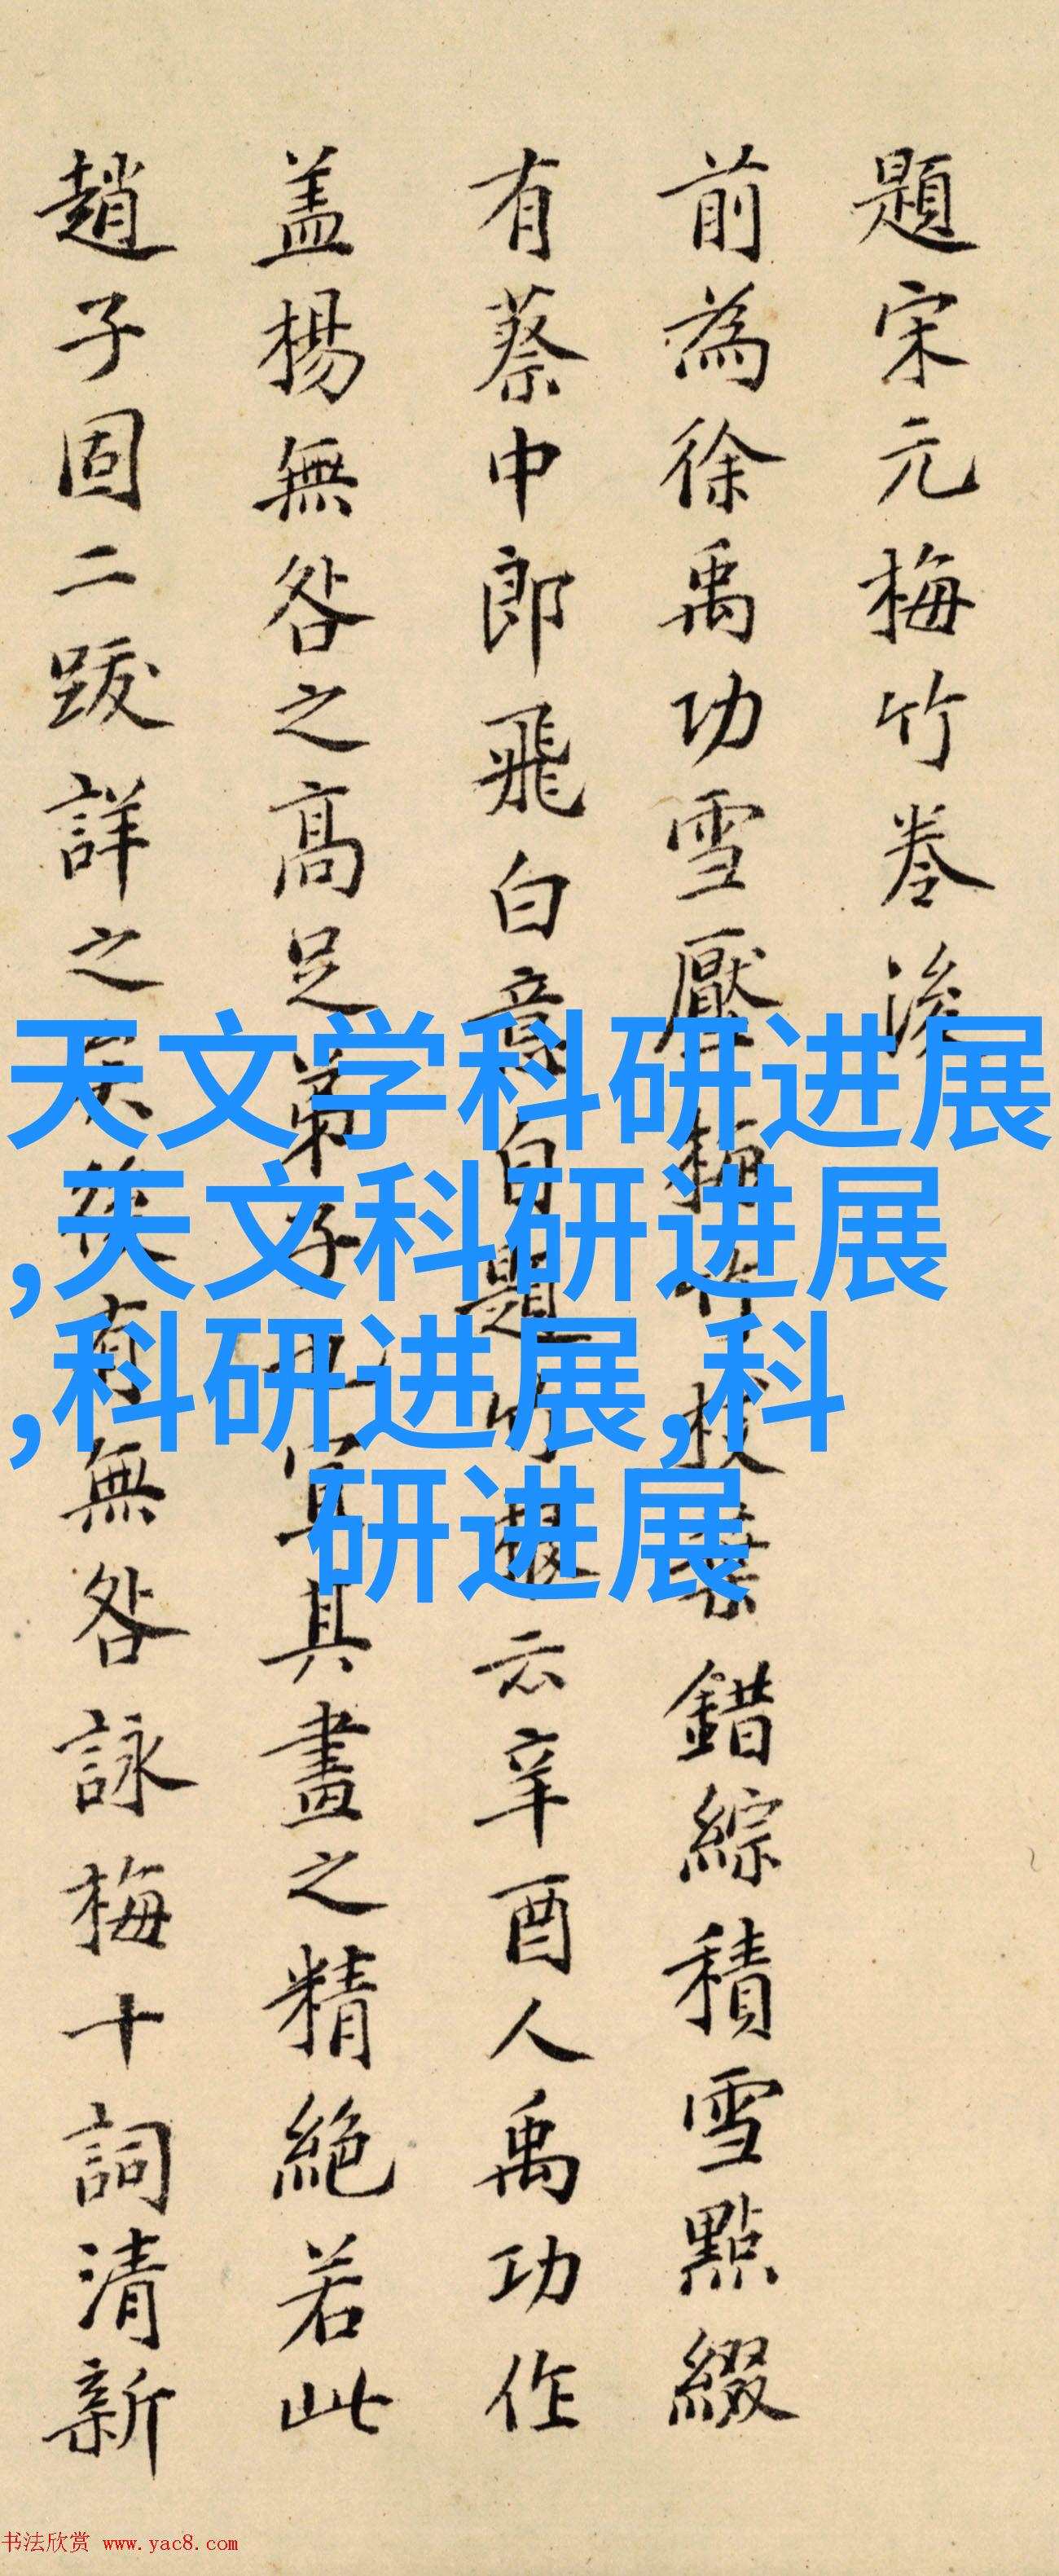 題宋元梅竹卷後
前為徐禹功雪壓梅竹枝葉錯綜積雪點綴
有蔡中郎飛白意自題竹云辛酉人禹功作
盖楊無咎之高足弟子也宜其畫之精絕若此
趙子固二跋詳之矣後有無咎詠梅十詞清新
天文学科研进展
,天文科研进展
,科研进展,科
研进展
书法欣赏 www.yac8.com